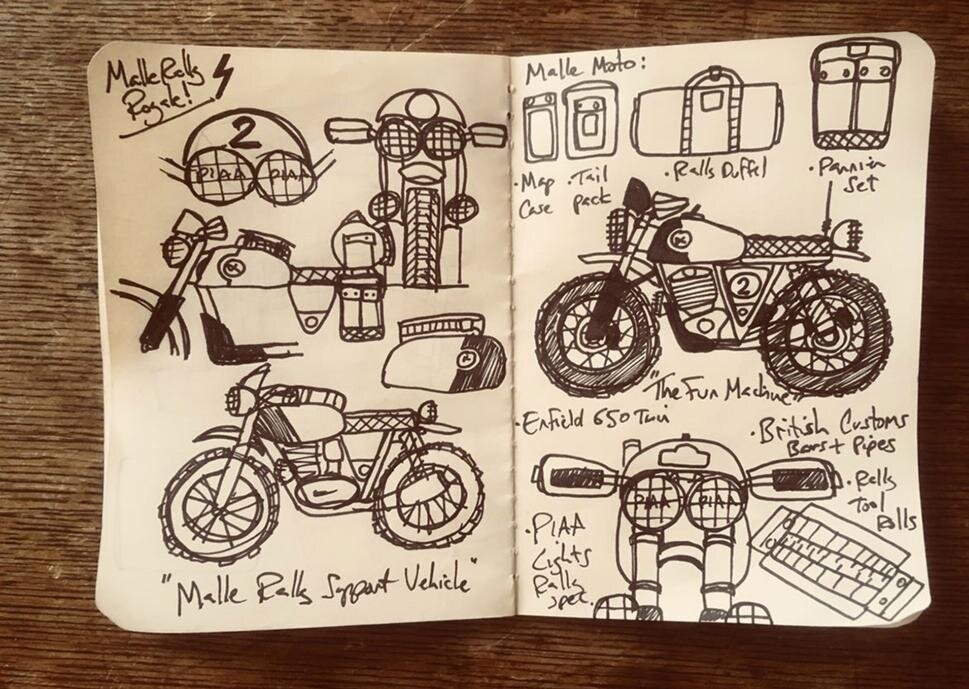 Malle Rally
Royale!
2
PIAA PIAA
"Malle Rally Support Vehicle"
Malle Moto:
·Map
Case
·Tail
pack
·Rally Duffel
·Pannier
Set
2
"The Fun Machine"
·Enfield 650 Twin
·British Customs
Bars + Pipes
·Rally
Tool
Rolls
PIAA PIAA
·PIAA
Lights
Rally
Spec.